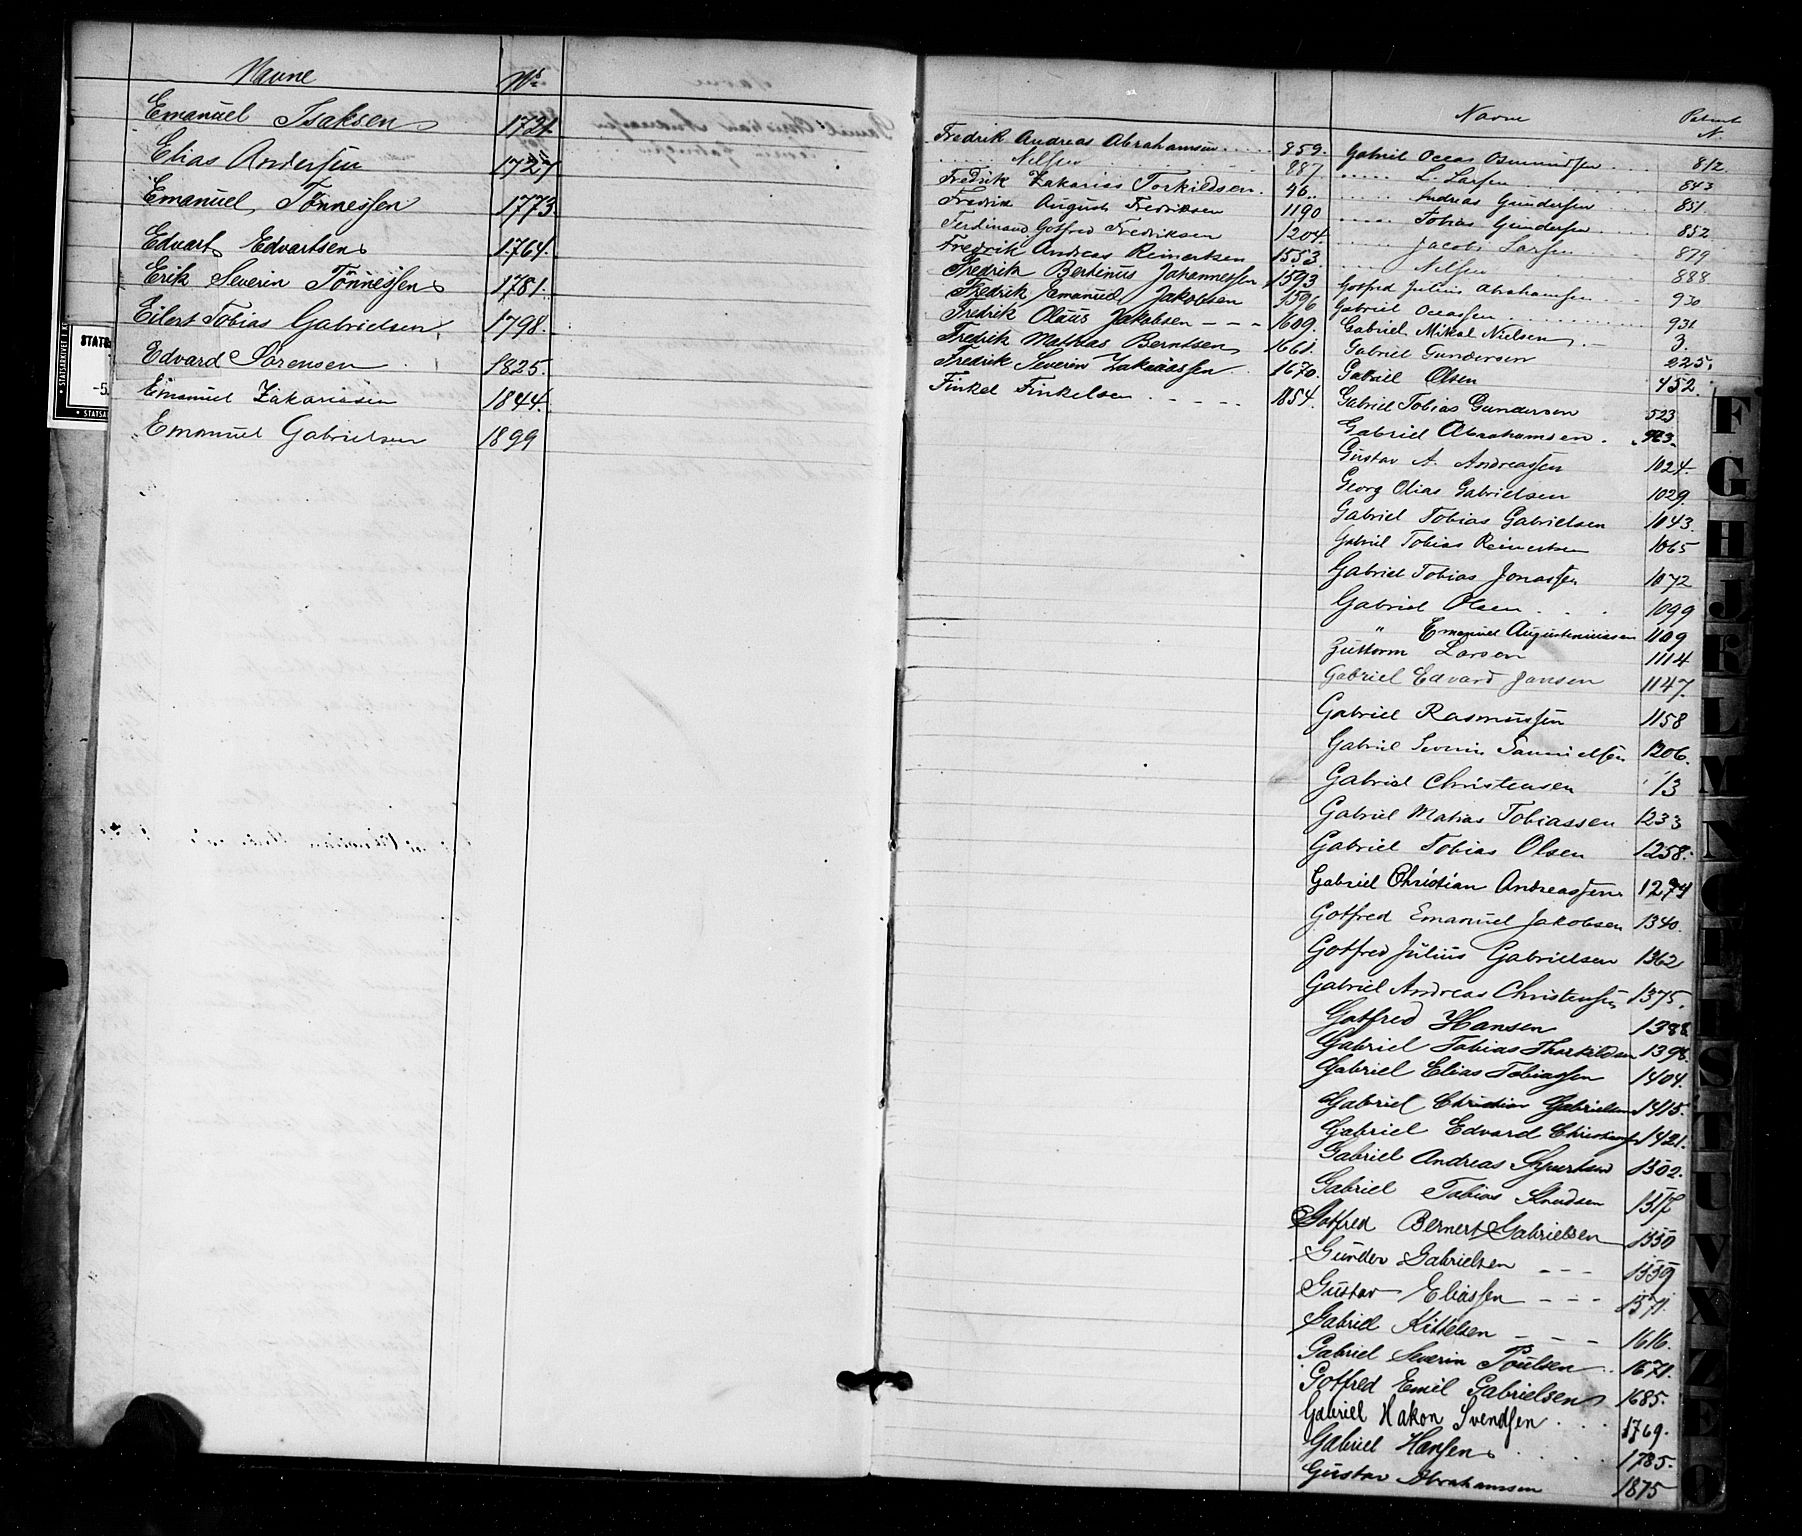 Navne No
Emanuel Isaksen 1721.
Elias Andersen 1727
Emanuel Tönnessen 1773
Edvart Edvartsen 1764.
Erik Severin Tönnessen 1781.
Eilert Tobias Gabrielsen 1798.
Edvard Sörensen 1825.
Emanuel Zakariasen 1844.
Emanuel Gabrielsen 1899
STATS
Fredrik Andreas Abrahamsen 859.
Nilsen 887
Fredrik Zakarias Torkildsen. 46
Fredrik August Fredriksen 1190
Ferdinand Gotfred Fredriksen 1204.
Fredrik Andreas Reinertsen 1553.
Fredrik Bertinius Johannessen 1593.
Fredrik Emanuel Jakobsen 1596
Fredrik Olaüs Jakobsen - - - 1609.
Fredrik Mathias Berntsen 1661.
Fredrik Severin Zakariassen 1670.
Finkel Finkelsen - - - - - 1854.
Navne N.
Gabriel Oceas Osmundsen 812.
L. Larsen 843
Andreas Gundersen 851.
Tobias Gundersen 852
Jacob Larsen 879
Nilsen 888
Gotfred Julius Abrahamsen 930
Gabriel 931
Gabriel Mikal Nielsen 3.
Gabriel Gundersen 225.
Gabriel Olsen 452.
Gabriel Tobias Gunderson 523
Gabriel Abrahamsen.
Gustav A. Andreassen 1024.
Georg Olias Gabrielsen 1029
Gabriel Tobias Gabrielsen 1043.
Gabriel Tobias Reinertsen 1065
Gabriel Tobias Jonassen 1072
Gabriel Olsen 1099
" Emanuel Augustiniussen 1109
Guttorm Larsen 1114
Gabriel Edvard Jansen 1147.
Gabriel Rasmussen 1158
Gabriel Severin Samuelsen 1206.
Gabriel Christensen 13
Gabriel Matias Tobiassen 1233
Gabriel Tobias Olsen 1258.
Gabriel Christian Andreassen 1274
Gotfred Emanuel Jakobsen 1340.
Gotfred Julius Gabrielsen 1362
Gabriel Andreas Christensen 1375.
Gotfred Hansen 1388.
Gabriel Tobias Thorkildsen 1398.
Gabriel Elias Tobiassen 1404.
Gabriel Christian Gabrielsen 1415.
Gabriel Edvard Christensen 1421.
Gabriel Andreas 1502.
Gabriel Tobias Knudsen 1517
Gotfred Bernert Gabrielsen 1550
Gunder Gabrielsen - - - 1559
Gustav Eliassen - - - 1571.
Gabriel Kittelsen - - - - 1616.
Gabriel Severin Poulsen 1671.
Gotfred Emil Gabrielsen 1685.
Gabriel Hakon Svendsen 1769.
Gabriel Hansen 1785.
Gustav Abrahamsen 1875
F
G
H
J
K
L
M
N
O
P
R
S
T
U
V
X
Z
Æ
Ø